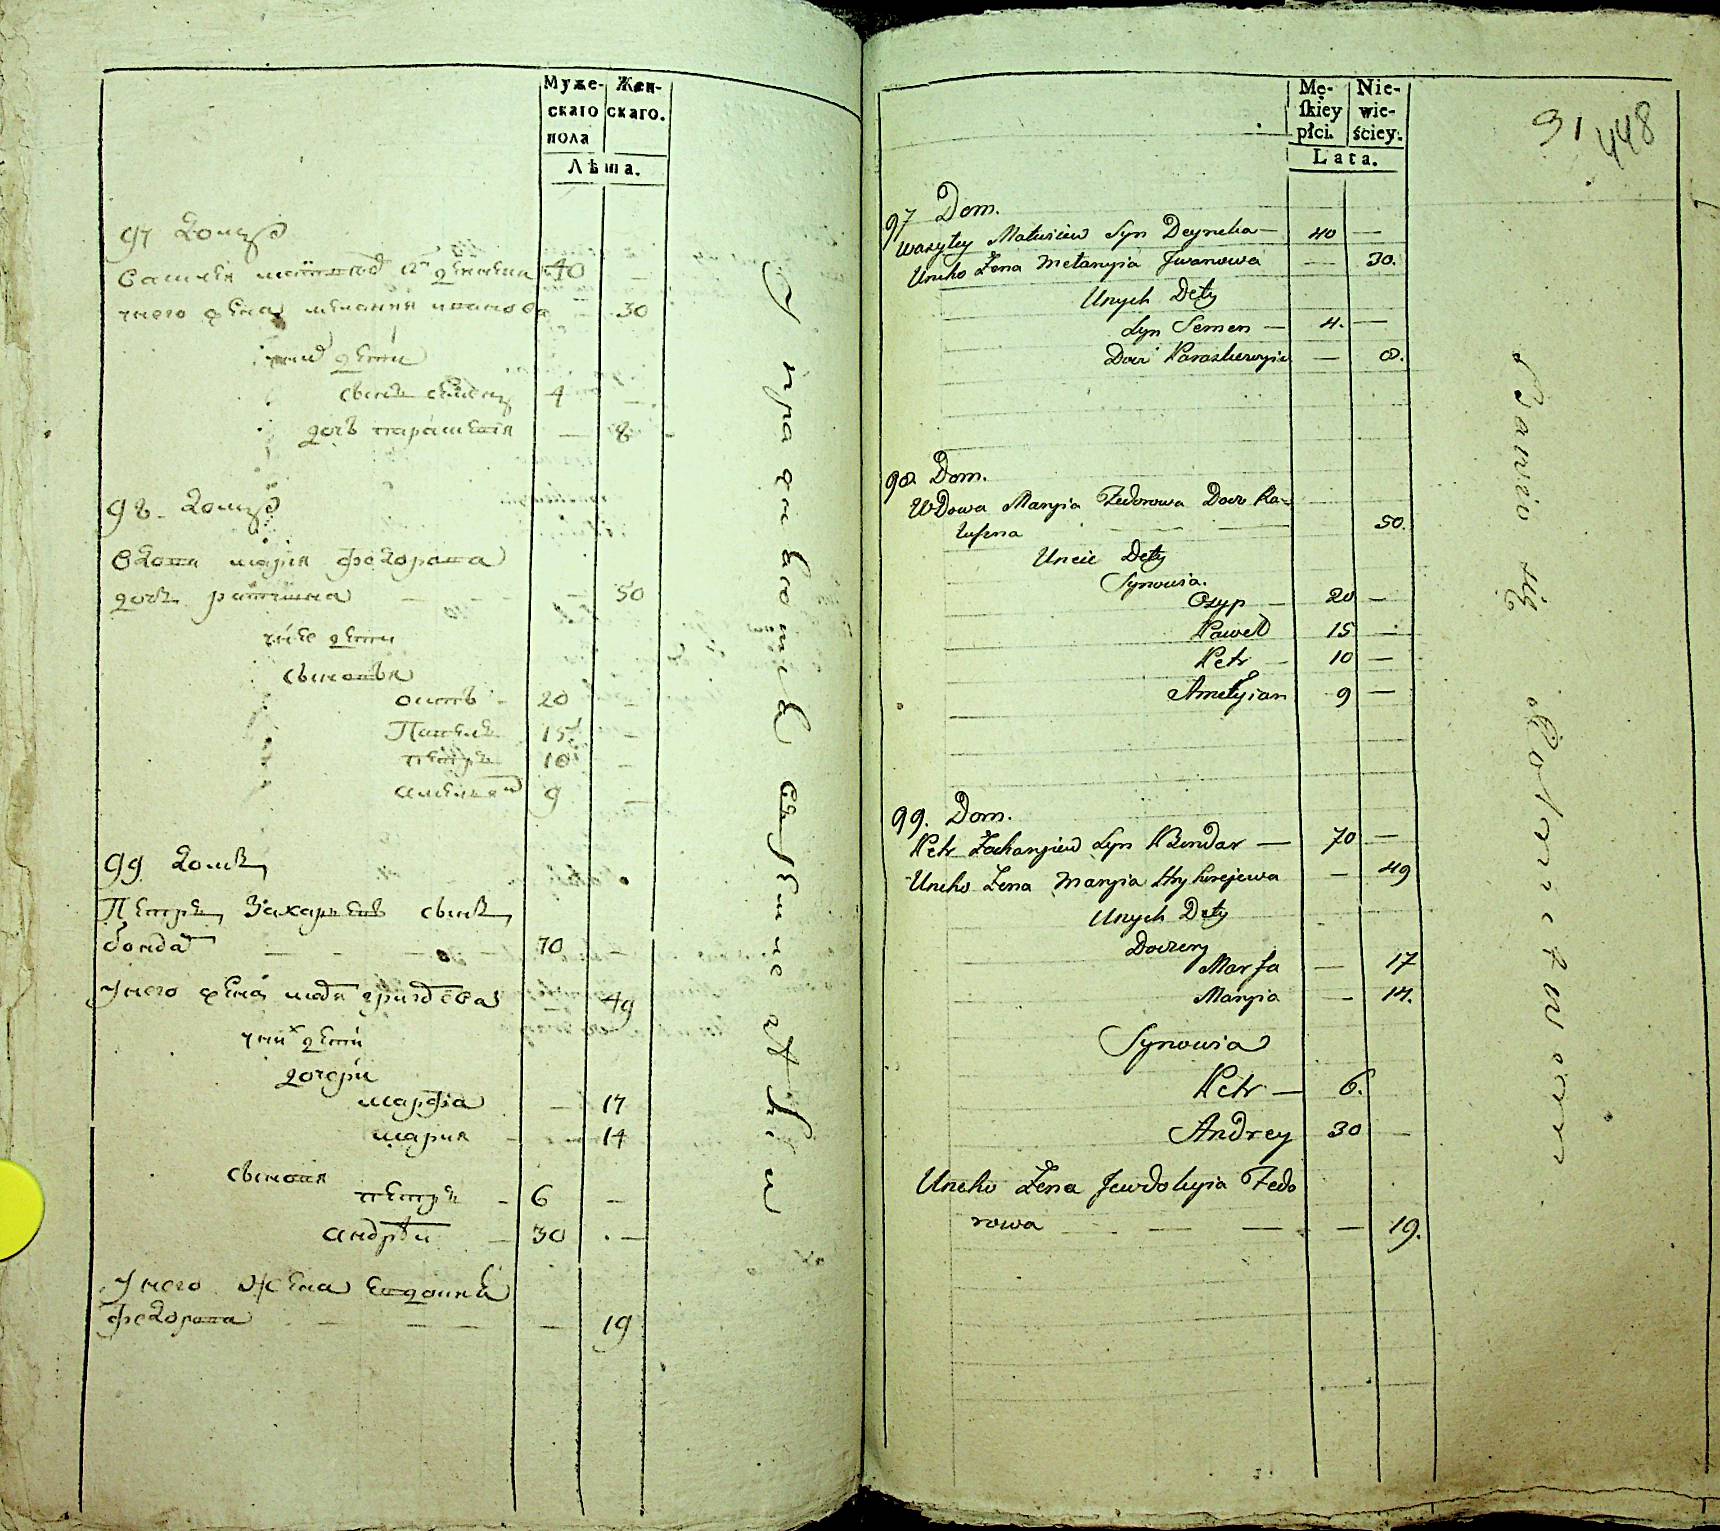 Муже-
скаго
пола
Жен-
скаго.
Лѣта.
97 Домъ
40
у него жена мелания иванова 30
у них дети
сынъ семенъ 4 —
дочь параскевия — 8
98. Домъ
вдова мария федорова
дочь — — — 50
у нее дети
сыновья
осипъ — 20 —
Павелъ 15 —
петръ 10 —
9 —
99 Домъ
Петръ Захариевъ сынъ
бондар — — — 70 —
у него жена 49
у них дети
дочери
марфа — 17
мария — 14
сыновя
петръ — 6 —
андрей — 30 —
у него жена евдокия
федорова — — — — 19
Mę-
ſkiey
płci.
Nie-
wie-
ściey.
Lata.
91 448
97 Dom.
Wasyley Matwiiew Syn Deyneka — 40 —
Uneho Żena Melanyia Jwanowa — 30.
Unych Dety
Syn Semen — 4. —
Docz Paraskewyia — 8.
98. Dom.
Wdowa Maryia Fedorowa Docz
— — — 50.
Uneie Dety
Synowia.
Osyp — 20 —
Paweł 15 —
Petr — 10 —
9 —
99. Dom.
Petr Zacharyiew Syn Bondar — 70 —
Uneho Żena Maryia Hryhorejewa — 49
Unych Dety
Doczery
Marfa — 17
Maryia — 14.
Synowia
Petr — 6.
Andrey 30 —
Uneho Żena Jewdokyia Fedo
rowa — — — — 19.